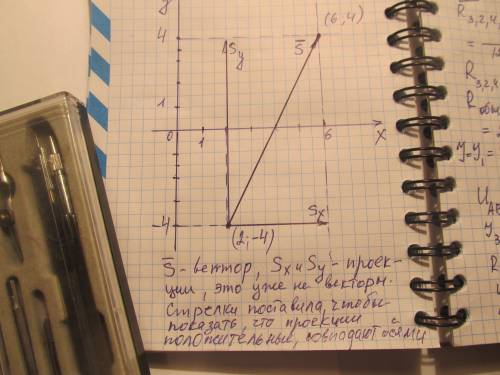 y
(6,4)
4
Sy
S̅
1
0
1
6
X
-4
Sx
(2,-4)
S̅ - вектор, Sx и Sy - проек-
ции, это уже не векторы.
Стрелки поставила, чтобы
показать, что проекции
положительные, совпадают с осями
R3,2,4
=
R3,2,4
Rобщ
=
У=У1=
U
У3
R